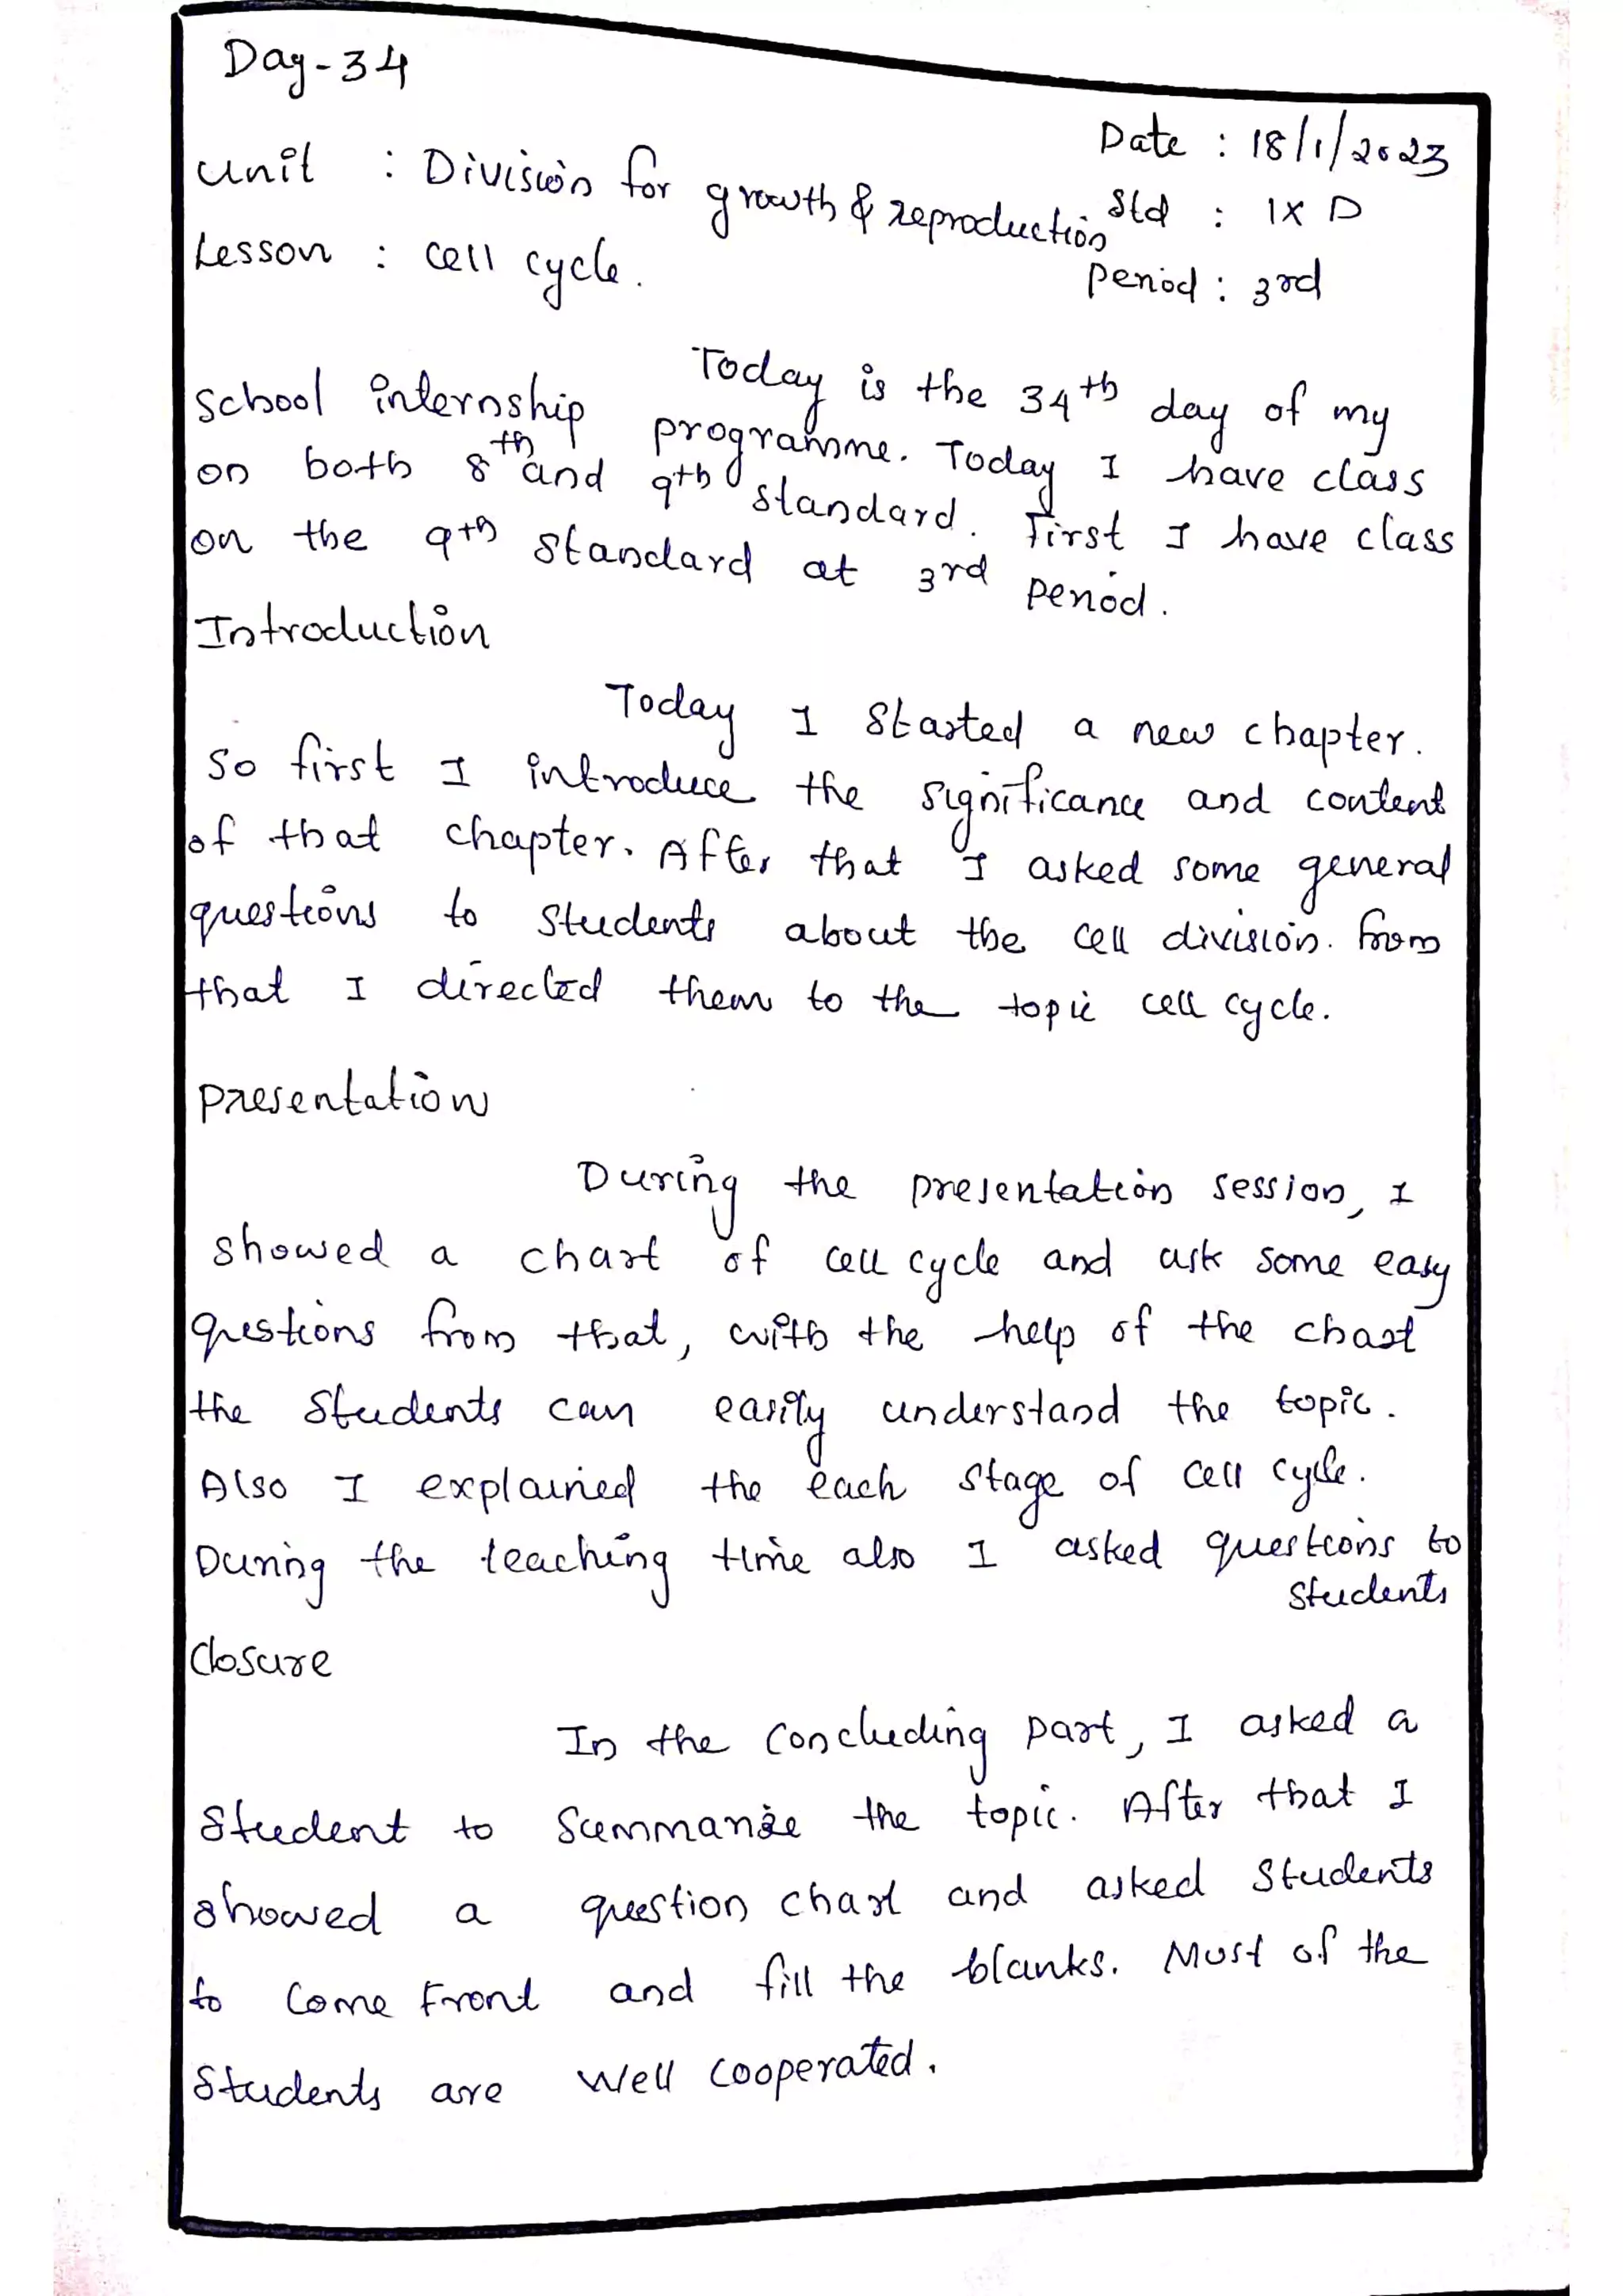 Day-34
Date : 18/1/2023
Unit : Division for growth & reproduction
Std : IX D
Lesson : cell cycle.
Period : 3rd
Today is the 34th day of my
school internship programme. Today I have class
on both 8th and 9th standard. First I have class
on the 9th standard at 3rd period.
Introduction
Today I started a new chapter.
So first I introduce the significance and content
of that chapter. After that I asked some general
questions to students about the cell division. From
that I directed them to the topic cell cycle.
Presentation
During the presentation session, I
showed a chart of cell cycle and ask some easy
qustions from that, with the help of the chart
the students can easily understand the topic.
Also I explained the each stage of cell cycle.
During the teaching time also I asked questions to
students
Closure
In the concluding part, I asked a
student to summarize the topic. After that I
showed a question chart and asked students
to come front and fill the blanks. Most of the
students are well cooperated.